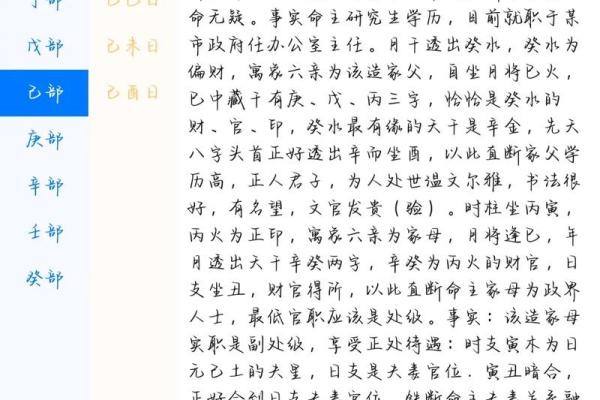 戊部
己部
庚部
辛部
壬部
癸部
己未日
己酉日
命无疑。事实命主研究生学历，目前就职于某
市政府任办公室主任。月干透出癸水，癸水为
偏财，寓家六亲为该造家父，自坐月将巳火，
巳中藏干有庚、戊、丙三字，恰恰是癸水的
财、官、印，癸水最有缘的天干是辛金，先天
八字头首正好透出辛而坐酉，以此直断家父学
历高，正人君子，为人处世温文尔雅，书法很
好，有名望，文官发贵（验）。时柱坐丙寅，
丙火为正印，寓家六亲为家母，月将逢巳，年
月透出天干辛癸两字，辛癸为丙火的财官，日
支坐丑，财官得所，以此直断命主家母为政界
人士，最低官职应该是处级。事实：该造家母
实职是副处级，享受正处待遇：时支寅木为日
元己土的夫星，日支是夫妻官位．寅丑暗合，